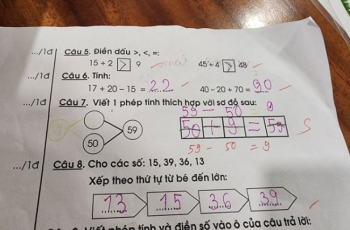 .../1đ Câu 5. Điền dấu >, <, =:
15 + 2 > 9 45 + 4 > 48
.../1đ Câu 6. Tính:
17 + 20 – 15 = 22 40 – 20 + 70 = 90
.../1đ Câu 7. Viết 1 phép tính thích hợp với sơ đồ sau:
59 – 50 9
59 50 + 9 = 59
50
59 – 50 = 9
.../1đ Câu 8. Cho các số: 15, 39, 36, 13
Xếp theo thứ tự từ bé đến lớn:
13 15 36 39
Viết phép tính và điền số vào ô của câu trả lời: